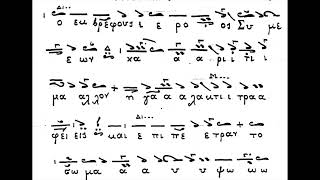 ο εκ βρεφους ι ε ρο ος Συ με
ε ων χα α α ρι τι ι
μα αλλον + η γα α α λακτι τραα
φει εις και ε πι πε ε τραν + το
σω μα α α υ υ ψω ω ω